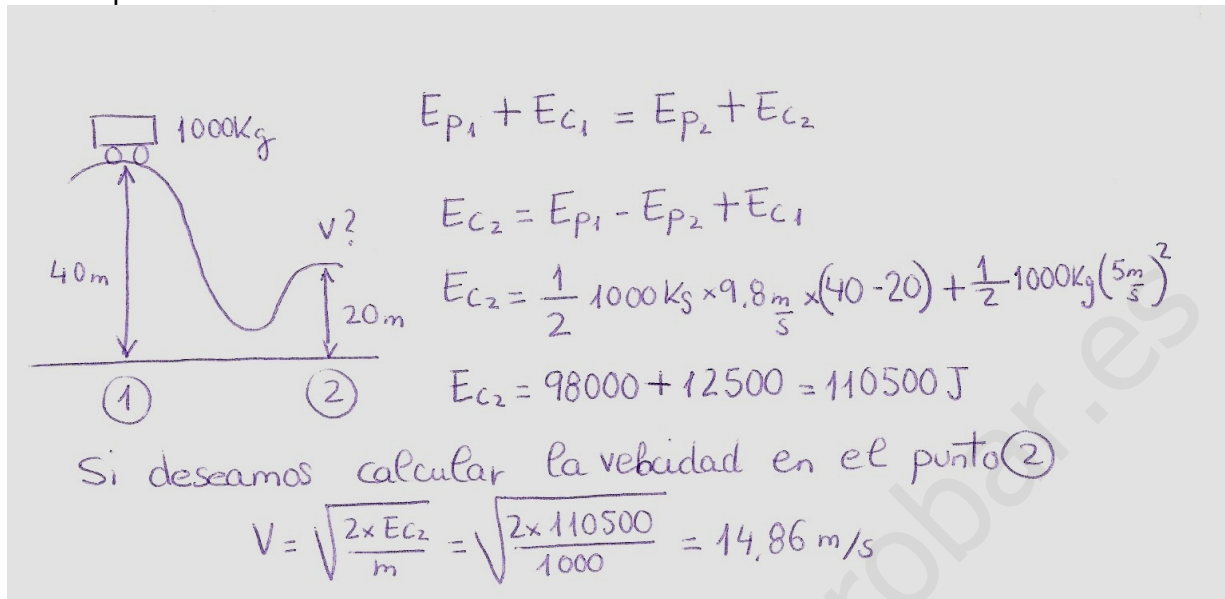 1000Kg
Ep₁ + Ec₁ = Ep₂ + Ec₂
V?
Ec₂ = Ep₁ - Ep₂ + Ec₁
40m
20m
Ec₂ = 1/2 1000Kg ×9.8 m/s ×(40-20) + 1/2 1000Kg (5m/s)²
① ②
Ec₂ = 98000 + 12500 = 110500 J
Si deseamos calcular la velocidad en el punto ②
V = √(2×Ec₂/m) = √(2×110500/1000) = 14.86 m/s